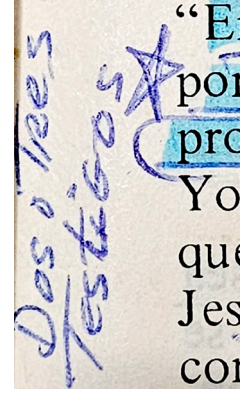 Dos o Tres
Testigos
“E
por
pro
Yo
que
Jes
con